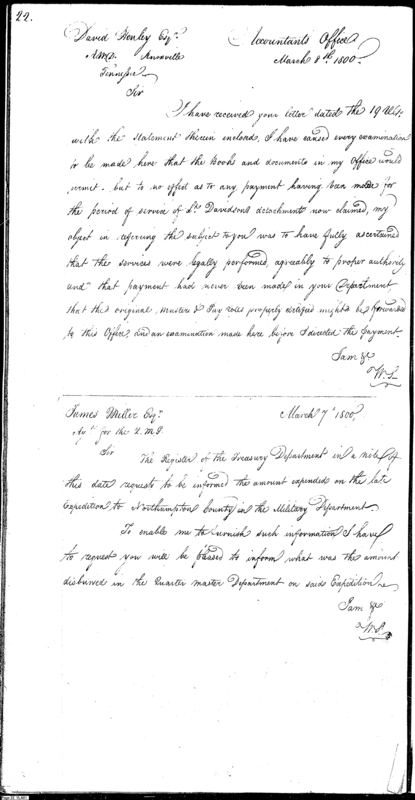 22.
David Henley Esqr. Accountants Office
A.W.D. Knoxville March 8th 1800.
Tennessee
Sir
I have received your letter dated the 19 Ulto.
with the statement therein inclosed, I have caused every examination
to be made here that the Books and documents in my Office would
permit, but to no effect as to any payment having been made for
the period of service of Lt. Davidsons detachment now claimed, my
object in referring the subject to you was to have fully ascertained
that the services were legally performed, agreeably to proper authority
and that payment had never been made in your Department
that the original musters & Pay rolls properly certified might be forwarded
to this Office, and an examination made here before I directed the Payment.
I am &c
W.S.
James Miller Esqr. March 7th 1800.
Agt. for the Q.M.G.
Sir
The Register of the Treasury Department in a note of
this date requests to be informed the amount expended on the late
Expedition to Northampton County in the Military Department.
To enable me to furnish such information I have
to request you will be pleased to inform what was the amount
disbursed in the Quarter master Department on said Expedition.
I am &c
W.S.